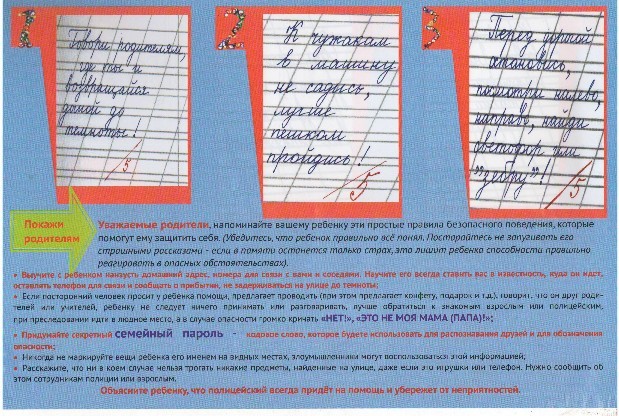 1
Говори родителям,
где ты и
возвращайся
домой до
темноты!
5
2
К чужакам
в машину
не садись,
лучше
пешком
пройдись!
5
3
Перед улицей
остановись,
посмотри налево,
направо, найди
светофор или
"зебру"!
5
Покажи
родителям
Уважаемые родители, напоминайте вашему ребенку эти простые правила безопасного поведения, которые
помогут ему защитить себя. (Убедитесь, что ребенок правильно всё понял. Постарайтесь не запугивать его
страшными рассказами - если в памяти останется только страх, это лишит ребенка способности правильно
реагировать в опасных обстоятельствах).
• Выучите с ребенком наизусть домашний адрес, номера для связи с вами и соседями. Научите его всегда ставить вас в известность, куда он идет,
оставлять телефон для связи и сообщать о прибытии, не задерживаться на улице до темноты;
• Если посторонний человек просит у ребенка помощи, предлагает проводить (при этом предлагает конфету, подарок и т.д.), говорит, что он друг роди-
телей или учителей, ребенку не следует ничего принимать или разговаривать, лучше обратиться к знакомым взрослым или полицейским,
при преследовании идти в людное место, а в случае опасности громко кричать «НЕТ!», «ЭТО НЕ МОЯ МАМА (ПАПА)!»;
• Придумайте секретный семейный пароль - кодовое слово, которое будете использовать для распознавания друзей и для обозначения
опасности;
• Никогда не маркируйте вещи ребенка его именем на видных местах, злоумышленники могут воспользоваться этой информацией;
• Расскажите, что ни в коем случае нельзя трогать никакие предметы, найденные на улице, даже если это игрушки или телефон. Нужно сообщить об
этом сотрудникам полиции или взрослым.
Объясните ребенку, что полицейский всегда придёт на помощь и убережет от неприятностей.